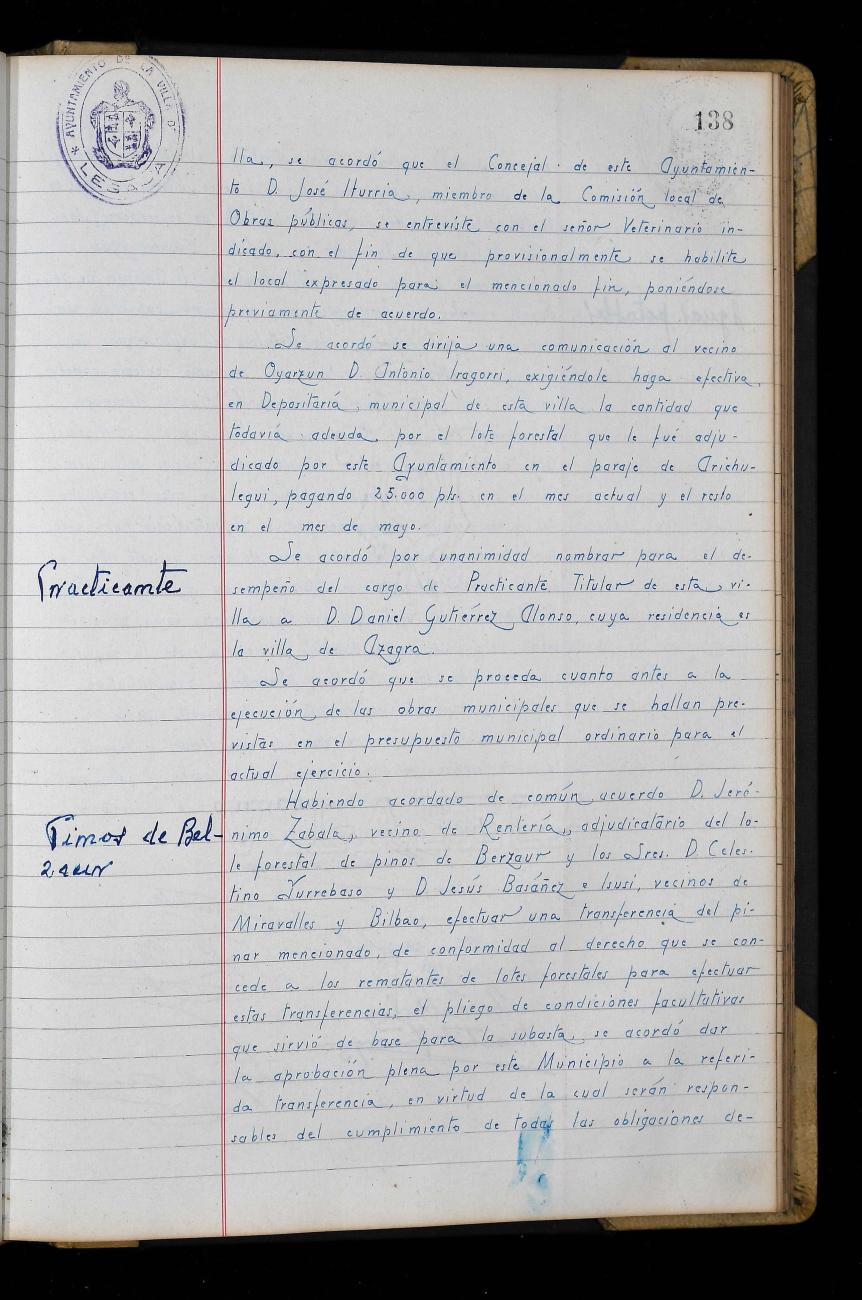 AYUNTAMIENTO DE LA VILLA D
* LESACA
138
lla, se acordó que el Concejal de este Ayuntamien-
to D. José Iturria, miembro de la Comisión local de
Obras públicas, se entreviste con el señor Veterinario in-
dicado, con el fin de que provisionalmente se habilite
el local expresado para el mencionado fin, poniéndose
previamente de acuerdo.
Se acordó se dirija una comunicación al vecino
de Oyarzun D. Antonio Iragorri, exigiéndole haga efectiva,
en Depositaría municipal de esta villa la cantidad que
todavía adeuda, por el lote forestal que le fué adju-
dicado por este Ayuntamiento en el paraje de Arichu-
legui, pagando 25.000 pts. en el mes actual y el resto
en el mes de mayo.
Practicante
Se acordó por unanimidad nombrar para el de-
sempeño del cargo de Practicante Titular de esta vi-
lla a D. Daniel Gutiérrez Alonso, cuya residencia es
la villa de Azagra.
Se acordó que se proceda cuanto antes a la
ejecución de las obras municipales que se hallan pre-
vistas en el presupuesto municipal ordinario para el
actual ejercicio.
Pinos de Bel-
zaur
Habiendo acordado de común acuerdo D. Jeró-
nimo Zabala, vecino de Rentería, adjudicatario del lo-
te forestal de pinos de Berzaur y los Sres. D. Celes-
tino Yurrebaso y D Jesús Basáñez e Isusi, vecinos de
Miravalles y Bilbao, efectuar una transferencia del pi-
nar mencionado, de conformidad al derecho que se con-
cede a los rematantes de lotes forestales para efectuar
estas transferencias, el pliego de condiciones facultativas
que sirvió de base para la subasta, se acordó dar
la aprobación plena por este Municipio a la referi-
da transferencia, en virtud de la cual serán respon-
sables del cumplimiento de todas las obligaciones de-